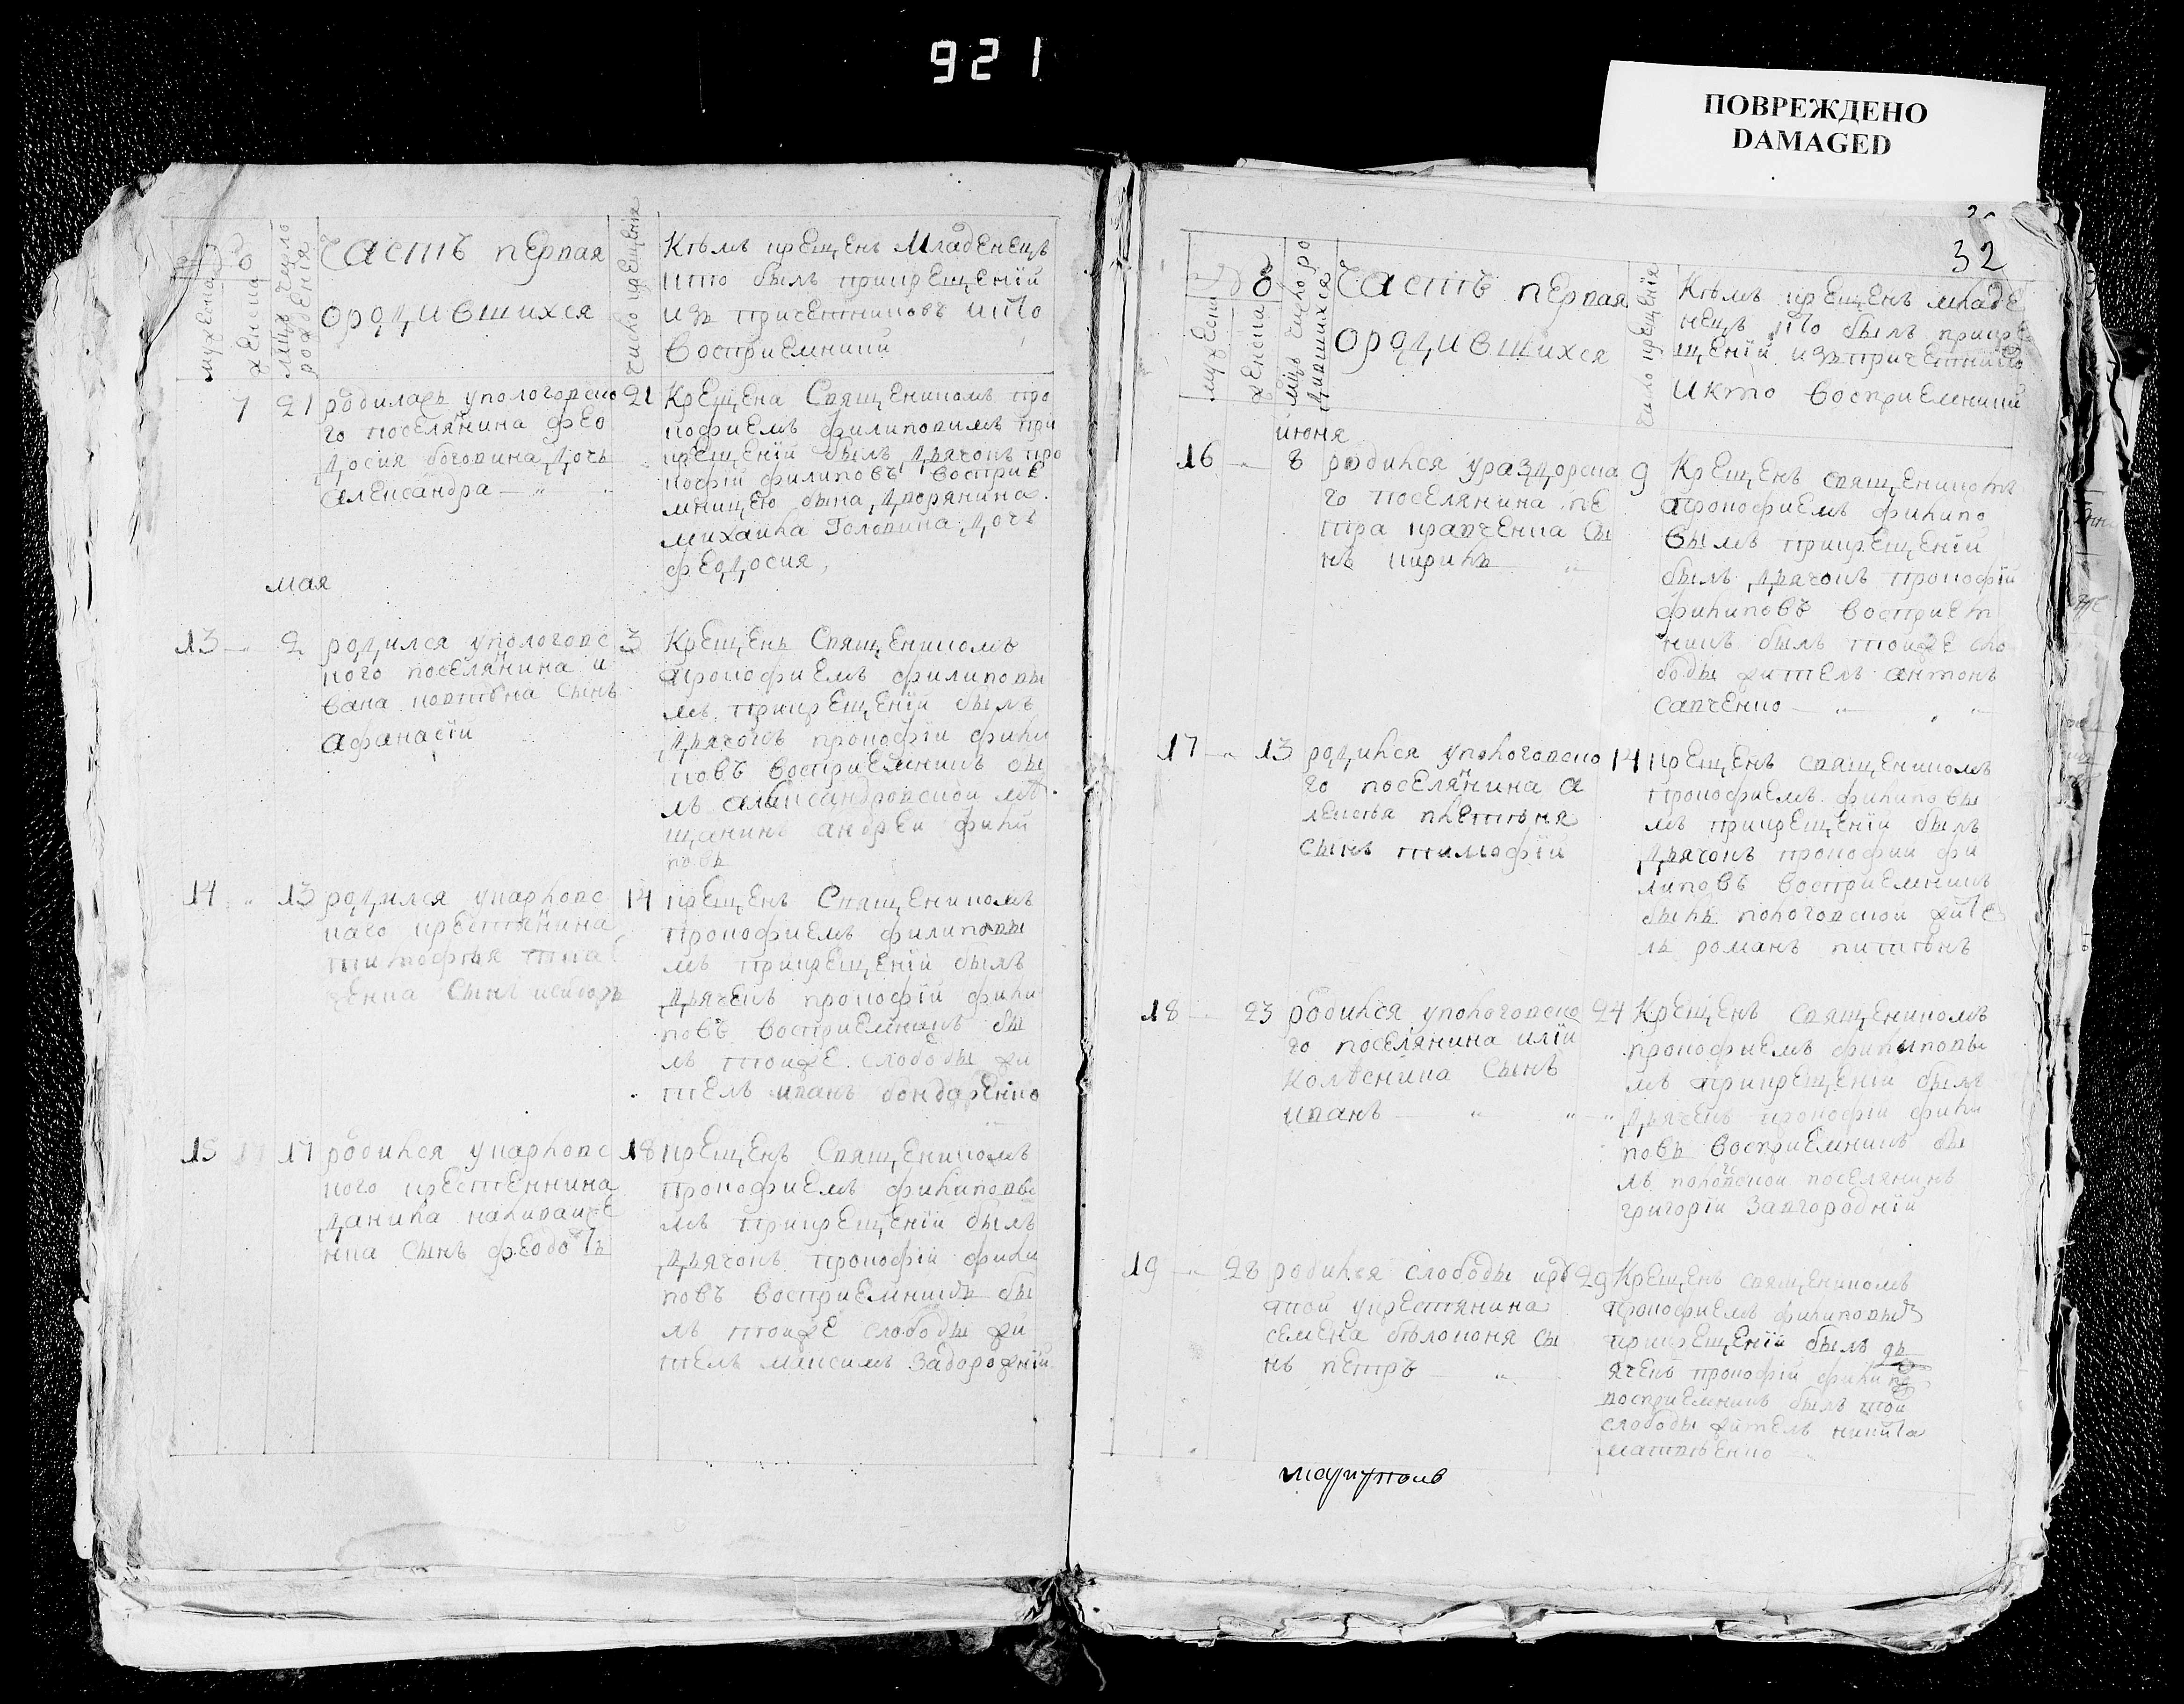 921
ПОВРЕЖДЕНО
DAMAGED
32
часть первая
ородившихся
число крещенія
Кѣмъ крещенъ младенецъ
кто былъ прикрещеній
изъ причетниковъ икто
восприемники
мужеска
женска
7
21
родилась упологовско
го поселянина фео
досия боговина дочь
александра
21
Крещена Священикомъ про
кофиемъ филиповимъ при
крещеній былъ дьячокъ про
кофій филиповъ восприе
мницею была дворянина
михаила Головина дочь
федосия
мая
13
2
родился упологовс
кого поселянина и
вана
сынъ
афанасіи
3
Крещенъ Священикомъ
прокофиемъ филиповы
мъ прикрещеніи былъ
дьячокъ прокофіи фили
повъ восприемникъ бы
лъ александровской мѣ
щанинъ андреи филй
повъ
14
13
родился упавловс
каго крестянина
тимофѣя
сынъ
14
крещенъ Священикомъ
прокофиемъ филиповы
мъ прикрещеній былъ
дьяченъ прокофій фили
повъ восприемникъ бы
лъ тоиже слободы жи
тель иванъ бондаренко
15
17
родился упавловс
кого крестеннина
данила наливаиче
нка сынъ феодотъ
18
крещенъ Священикомъ
прокофиемъ филиповы
мъ прикрещеніи былъ
дьячокъ прокофій фили
повъ восприемникъ бы
лъ тоиже слободы жи
тель максимъ Задорожній
часть первая
ородившихся
число крещенія
Кѣмъ крещенъ младе
нецъ кто былъ прикре
щеній изъпричетнико
икто восприемники
июня
16
8
родился ураздорска
го поселянина пе
тра кравченка сы
нъ кирилъ
9
Крещенъ священикомъ
прокофиемъ филипо
вымъ прикрещеніи
былъ дьячокъ прокофій
филиповъ восприем
никъ былъ тоиже сло
боды житель антонъ
савченко
17
13
родился упологовско
го поселянина а
лексѣя плетѣня
сынъ тимофіи
14
крещенъ священикомъ
прокофиемъ филиповы
мъ прикрещеніи былъ
дьячокъ прокофии фи
липовъ восприемникъ
былъ пологовской жите
ль романъ
18
23
родился упологовско
го поселянина иліи
Колѣсника сынъ
иванъ
24
Крещенъ священикомъ
прокофыемъ филыповы
мъ прикрещеніи былъ
дьяченъ прокофіи фили
повъ восприемникъ бы
лъ пологовской поселянинъ
григоріи Завгородній
19
28
родился слободы крѣ
пкой укрестянина
семена бѣлоконя сы
нъ петръ
29
Крещенъ священикомъ
прокофиемъ филиповымъ
прикрещеніи былъ дь
яченъ прокофіи филипо
восприемникъ былъ тои
слободы житель никита
матвѣенко